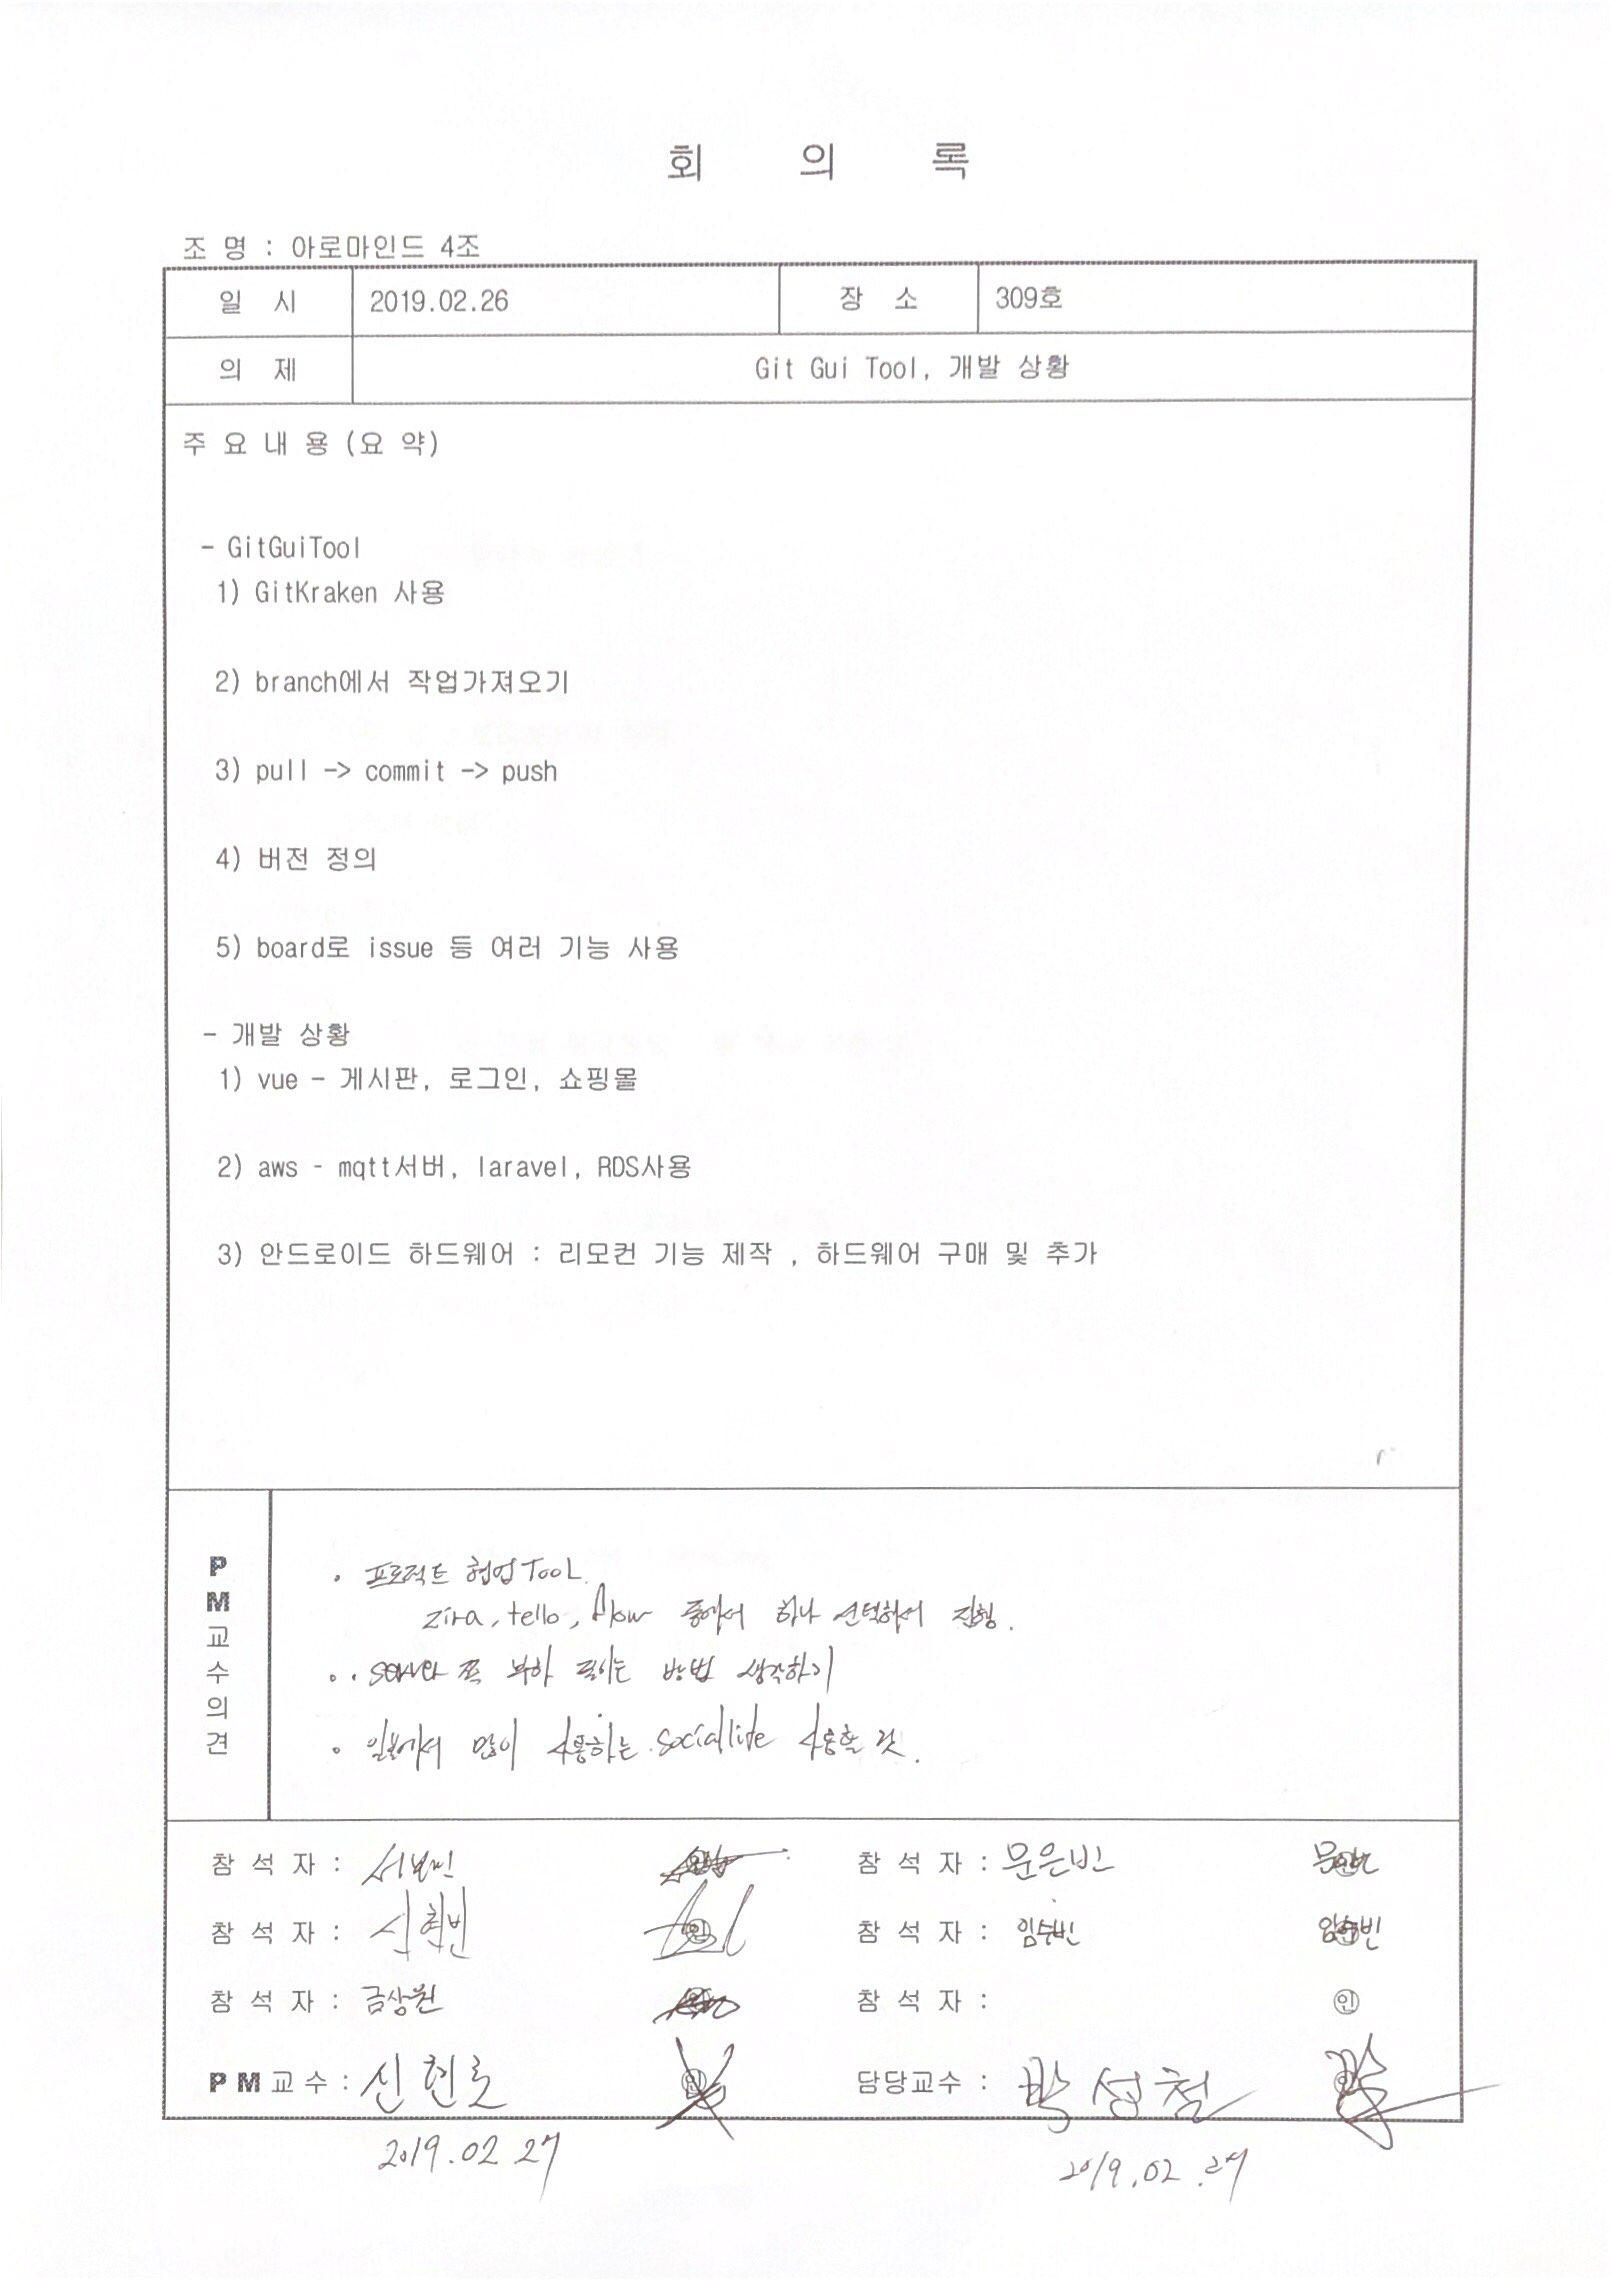 회 의 록
조 명 : 아로마인드 4조
일 시 2019.02.26 장 소 309호
의 제 Git Gui Tool, 개발 상황
주 요 내 용 (요 약)
- GitGuiTool
1) GitKraken 사용
2) branch에서 작업가져오기
3) pull -> commit -> push
4) 버전 정의
5) board로 issue 등 여러 기능 사용
- 개발 상황
1) vue - 게시판, 로그인, 쇼핑몰
2) aws - mqtt서버, laravel, RDS사용
3) 안드로이드 하드웨어 : 리모컨 기능 제작 , 하드웨어 구매 및 추가
PM교수의견
• 프로젝트 협업 TooL.
zira, tello, flow 중에서 하나 선택하여 진행.
• 쪽 부하 줄이는 방법 생각하기
• 일본에서 많이 사용하는 sociallite 사용할 것.
참 석 자 : 서보민 참 석 자 : 문은빈
참 석 자 : 참 석 자 : 임수빈 임수빈
참 석 자 : 금상원 참 석 자 : 인
PM교수 : 신현호 인 담당교수 : 박성철
2019.02.27 2019.02.27